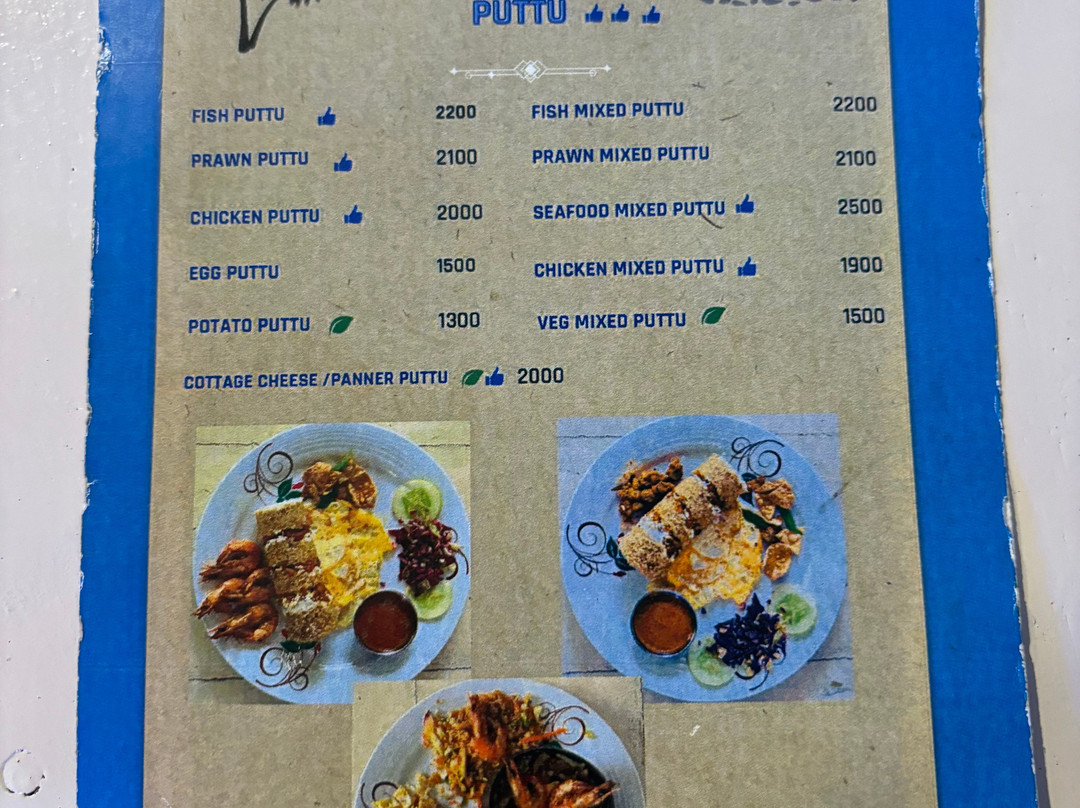 PUTTU
FISH PUTTU 2200
PRAWN PUTTU 2100
CHICKEN PUTTU 2000
EGG PUTTU 1500
POTATO PUTTU 1300
COTTAGE CHEESE /PANNER PUTTU 2000
FISH MIXED PUTTU 2200
PRAWN MIXED PUTTU 2100
SEAFOOD MIXED PUTTU 2500
CHICKEN MIXED PUTTU 1900
VEG MIXED PUTTU 1500